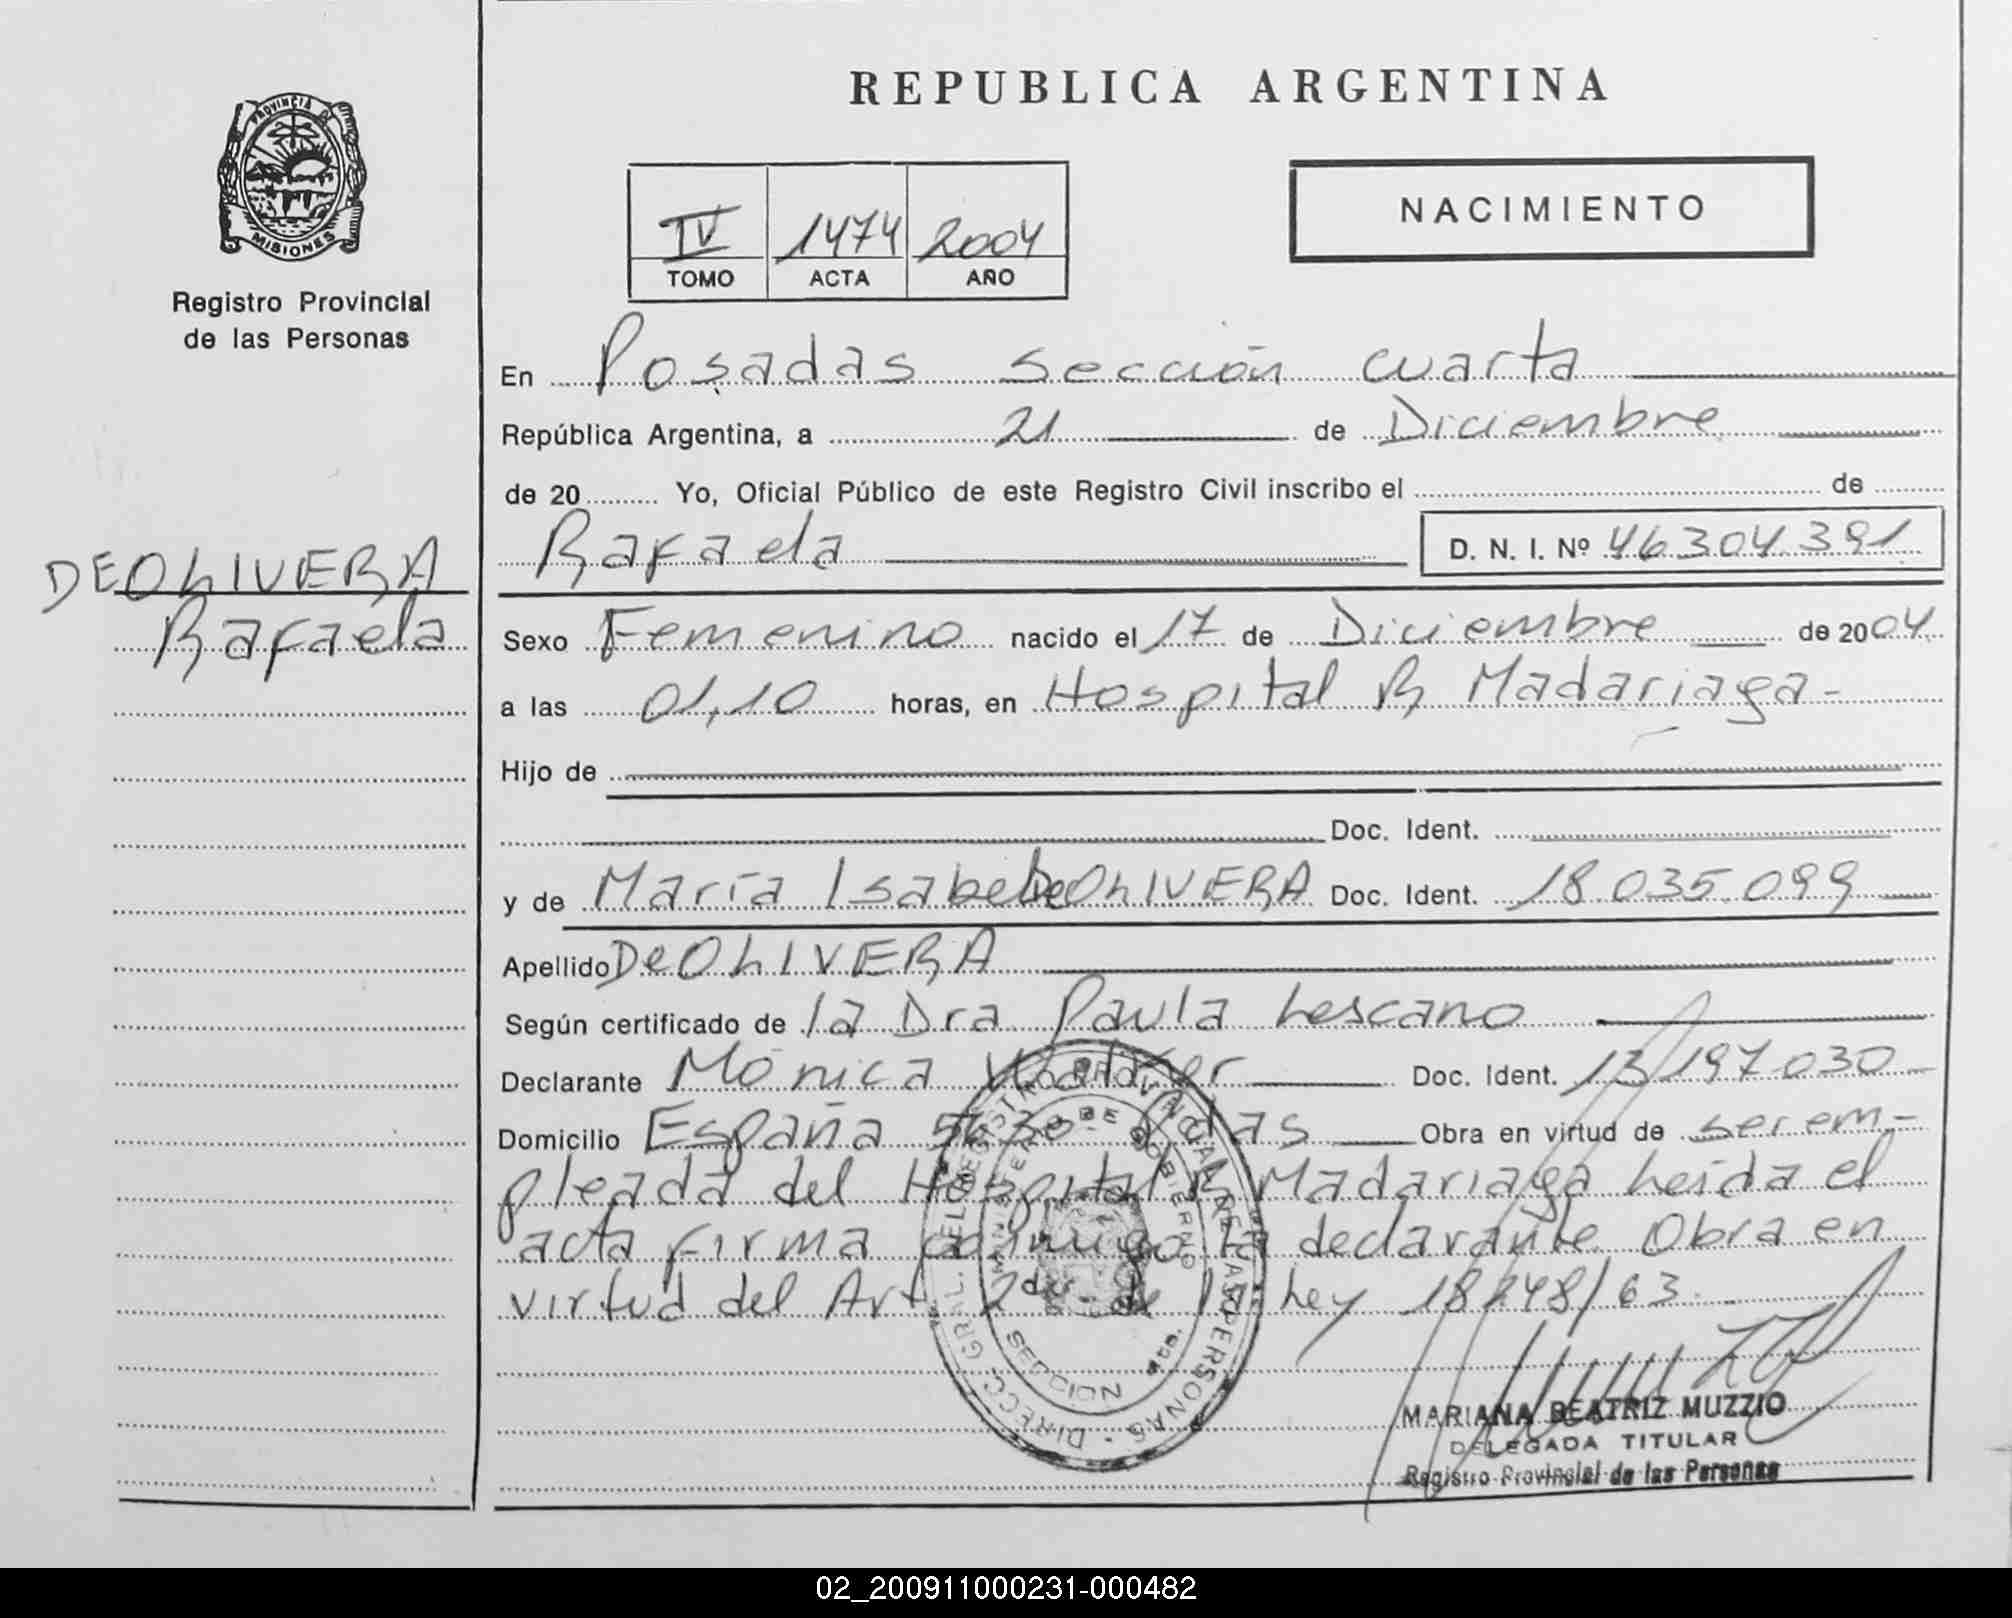 PROVINCIA DE
MISIONES
Registro Provincial
de las Personas
DEOLIVERA
Rafaela
REPUBLICA ARGENTINA
IV 1474 2004
TOMO ACTA AÑO
NACIMIENTO
En Posadas sección cuarta
República Argentina, a 21 de Diciembre
de 20 Yo, Oficial Público de este Registro Civil inscribo el de
Rafaela D. N. I. Nº 46304.391
Sexo Femenino nacido el 17 de Diciembre de 2004
a las 01,10 horas, en Hospital R Madariaga-
Hijo de
Doc. Ident.
y de María Isabel DeOLIVERA Doc. Ident. 18.035.099
Apellido DeOLIVERA
Según certificado de la Dra Paula Lescano
Declarante Mónica Doc. Ident. 13197.030
Domicilio España Obra en virtud de ser em-
pleada del Hospital R Madariaga Leída el
acta firma conmigo la declarante Obra en
virtud del Art 2do de la Ley 18248/63
DIRECC. GRAL. DEL REGISTRO PROVINCIAL DE LAS PERSONAS
MINISTERIO DE GOBIERNO
SECCION
MARIANA BEATRIZ MUZZIO
DELEGADA TITULAR
Registro Provincial de las Personas
02_200911000231-000482